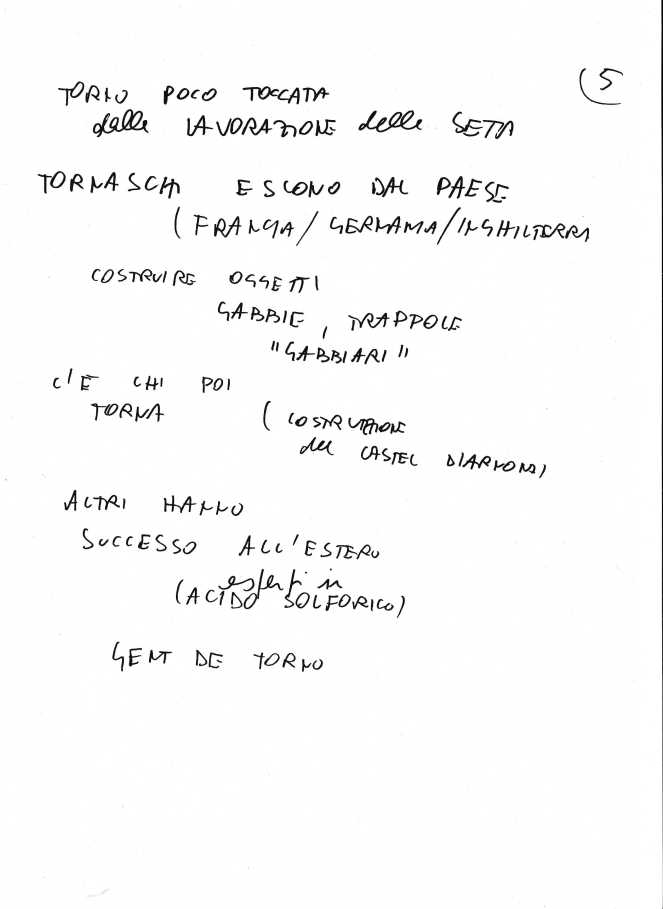 5
TORNO POCO TOCCATA
dalla LAVORAZIONE della SETA
TORNASCHI ESCONO DAL PAESE
(FRANCIA/GERMANIA/INGHILTERRA
COSTRUIRE OGGETTI
GABBIE, TRAPPOLE
"GABBIARI"
C'È CHI POI
TORNA (COSTRUZIONE
del CASTEL DIARMONI)
ALTRI HANNO
SUCCESSO ALL'ESTERO
esperti in
(ACIDO SOLFORICO)
GENT DE TORNO